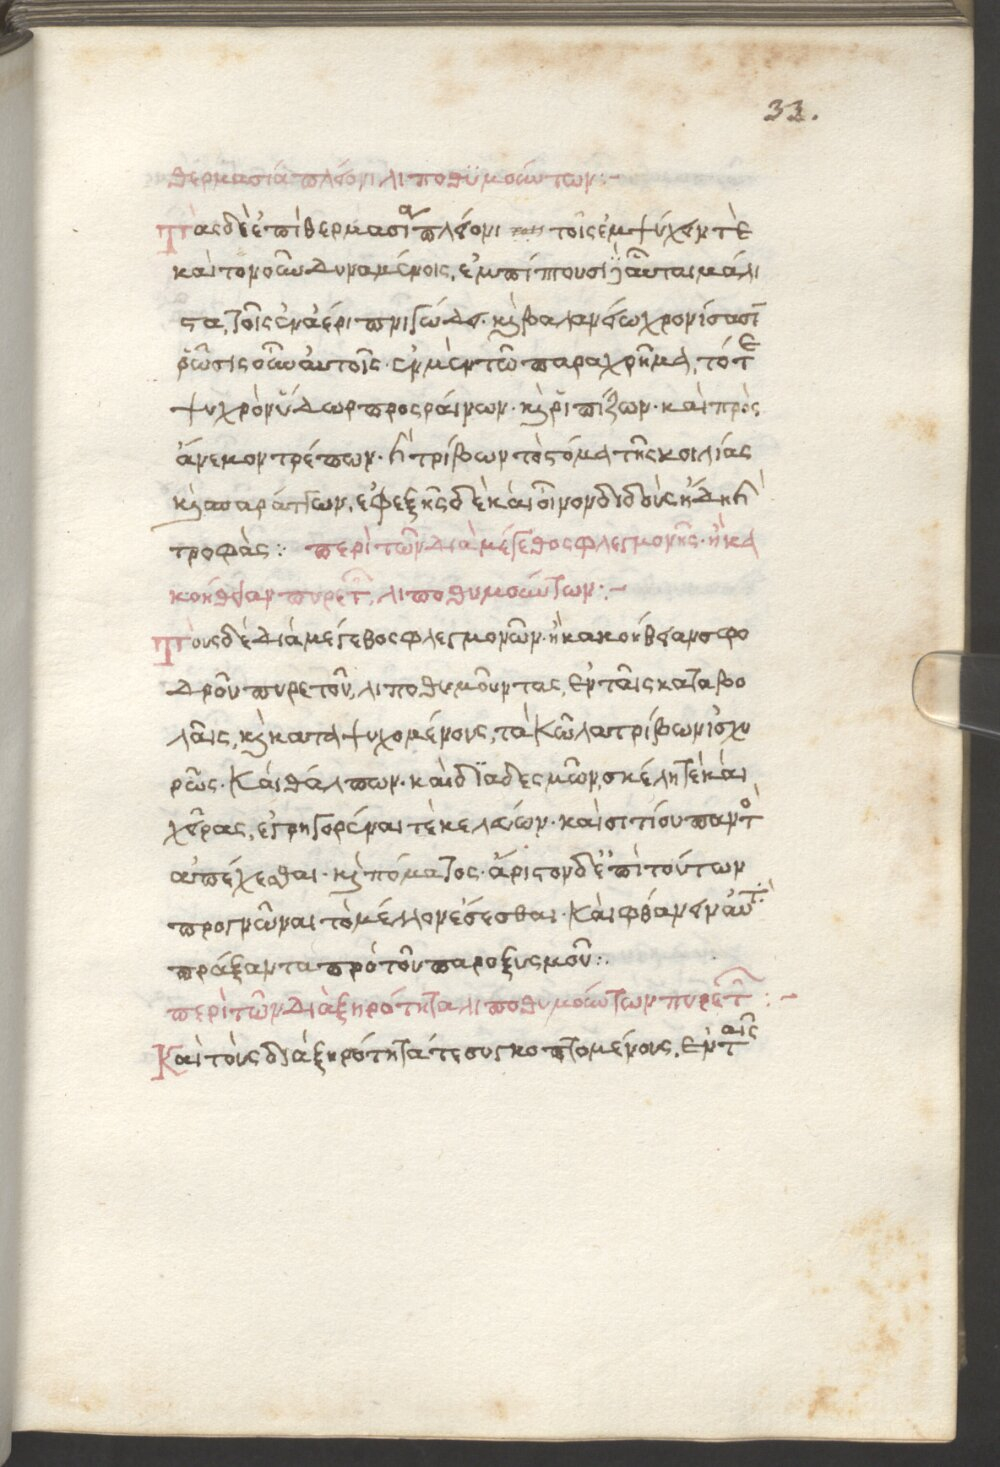 33.
θερμασία πλέονι λιποθυμοώντων :-
Τὰς δὲ ἐπὶ θερμασίᾳ πλέονι τοῖς ἐμψύχειν τὲ
καὶ τονοῦν δυναμένοις, ἐμπίπτουσι ἂυται μάλι
στα, τοῖς ἐν ἀέρι πνιγώδει. κὶ βαλανείω χρονίσασῖ
ῥῶσις οὖν ἀυτοῖς. ἐν μὲν τῶ παραχρῆμα, τό τε
ψυχρὸν ὕδωρ προσραίνων. κὶ ῥιπίζων. καὶ πρὸς
ἄνεμον τρέπων. ἢ τρίβων τὸ στόμα τῆς κοιλίας
κὶ ασαράττων, ἐφεξῆς δὲ κὰι οἶνον διδοὺς ἤδη ἢ
τροφὰς : περὶ τῶν διὰ μέγεθος φλεγμονῆς. ἢ κα
κοήθειαν πυρετ͂, λιποθυμοώντων :-
Τοις δὲ διὰ μέγεθος φλεγμονῶν. ἢ κακοήθειαν σφο
δροῦ πυρετοῦ, λιποθυμοῦντας, ἐν τᾶις καταβο
λᾶις, κὶ καταψυχομένους, τὰ κῶλα τρίβων ἰσχυ
ρῶς. κὰι θάλπων. κὰι διαδεσμῶν, σκέλη τὲ κὰι
χεῖρας, ἐγρηγορέναι τὲ κελεύων. κὰι σιτίου παντὸ
απέχεσθαι. κὶ πόματος. ἄριστον δ' ἐπὶ τούτων
προγνῶναι τὸ μέλλον ἔσεσθαι. κὰι φθάνειν ἀυτ
πράξαντα πρὸ τοῦ παροξυσμοῦ :.
περὶ τῶν διὰ ξηρότητα λιποθυμοώντων πυρετ͂ :-
Κὰι τοὺς διὰ ξηρότητά τε συγκοπτομένους, ἐν ταῖς